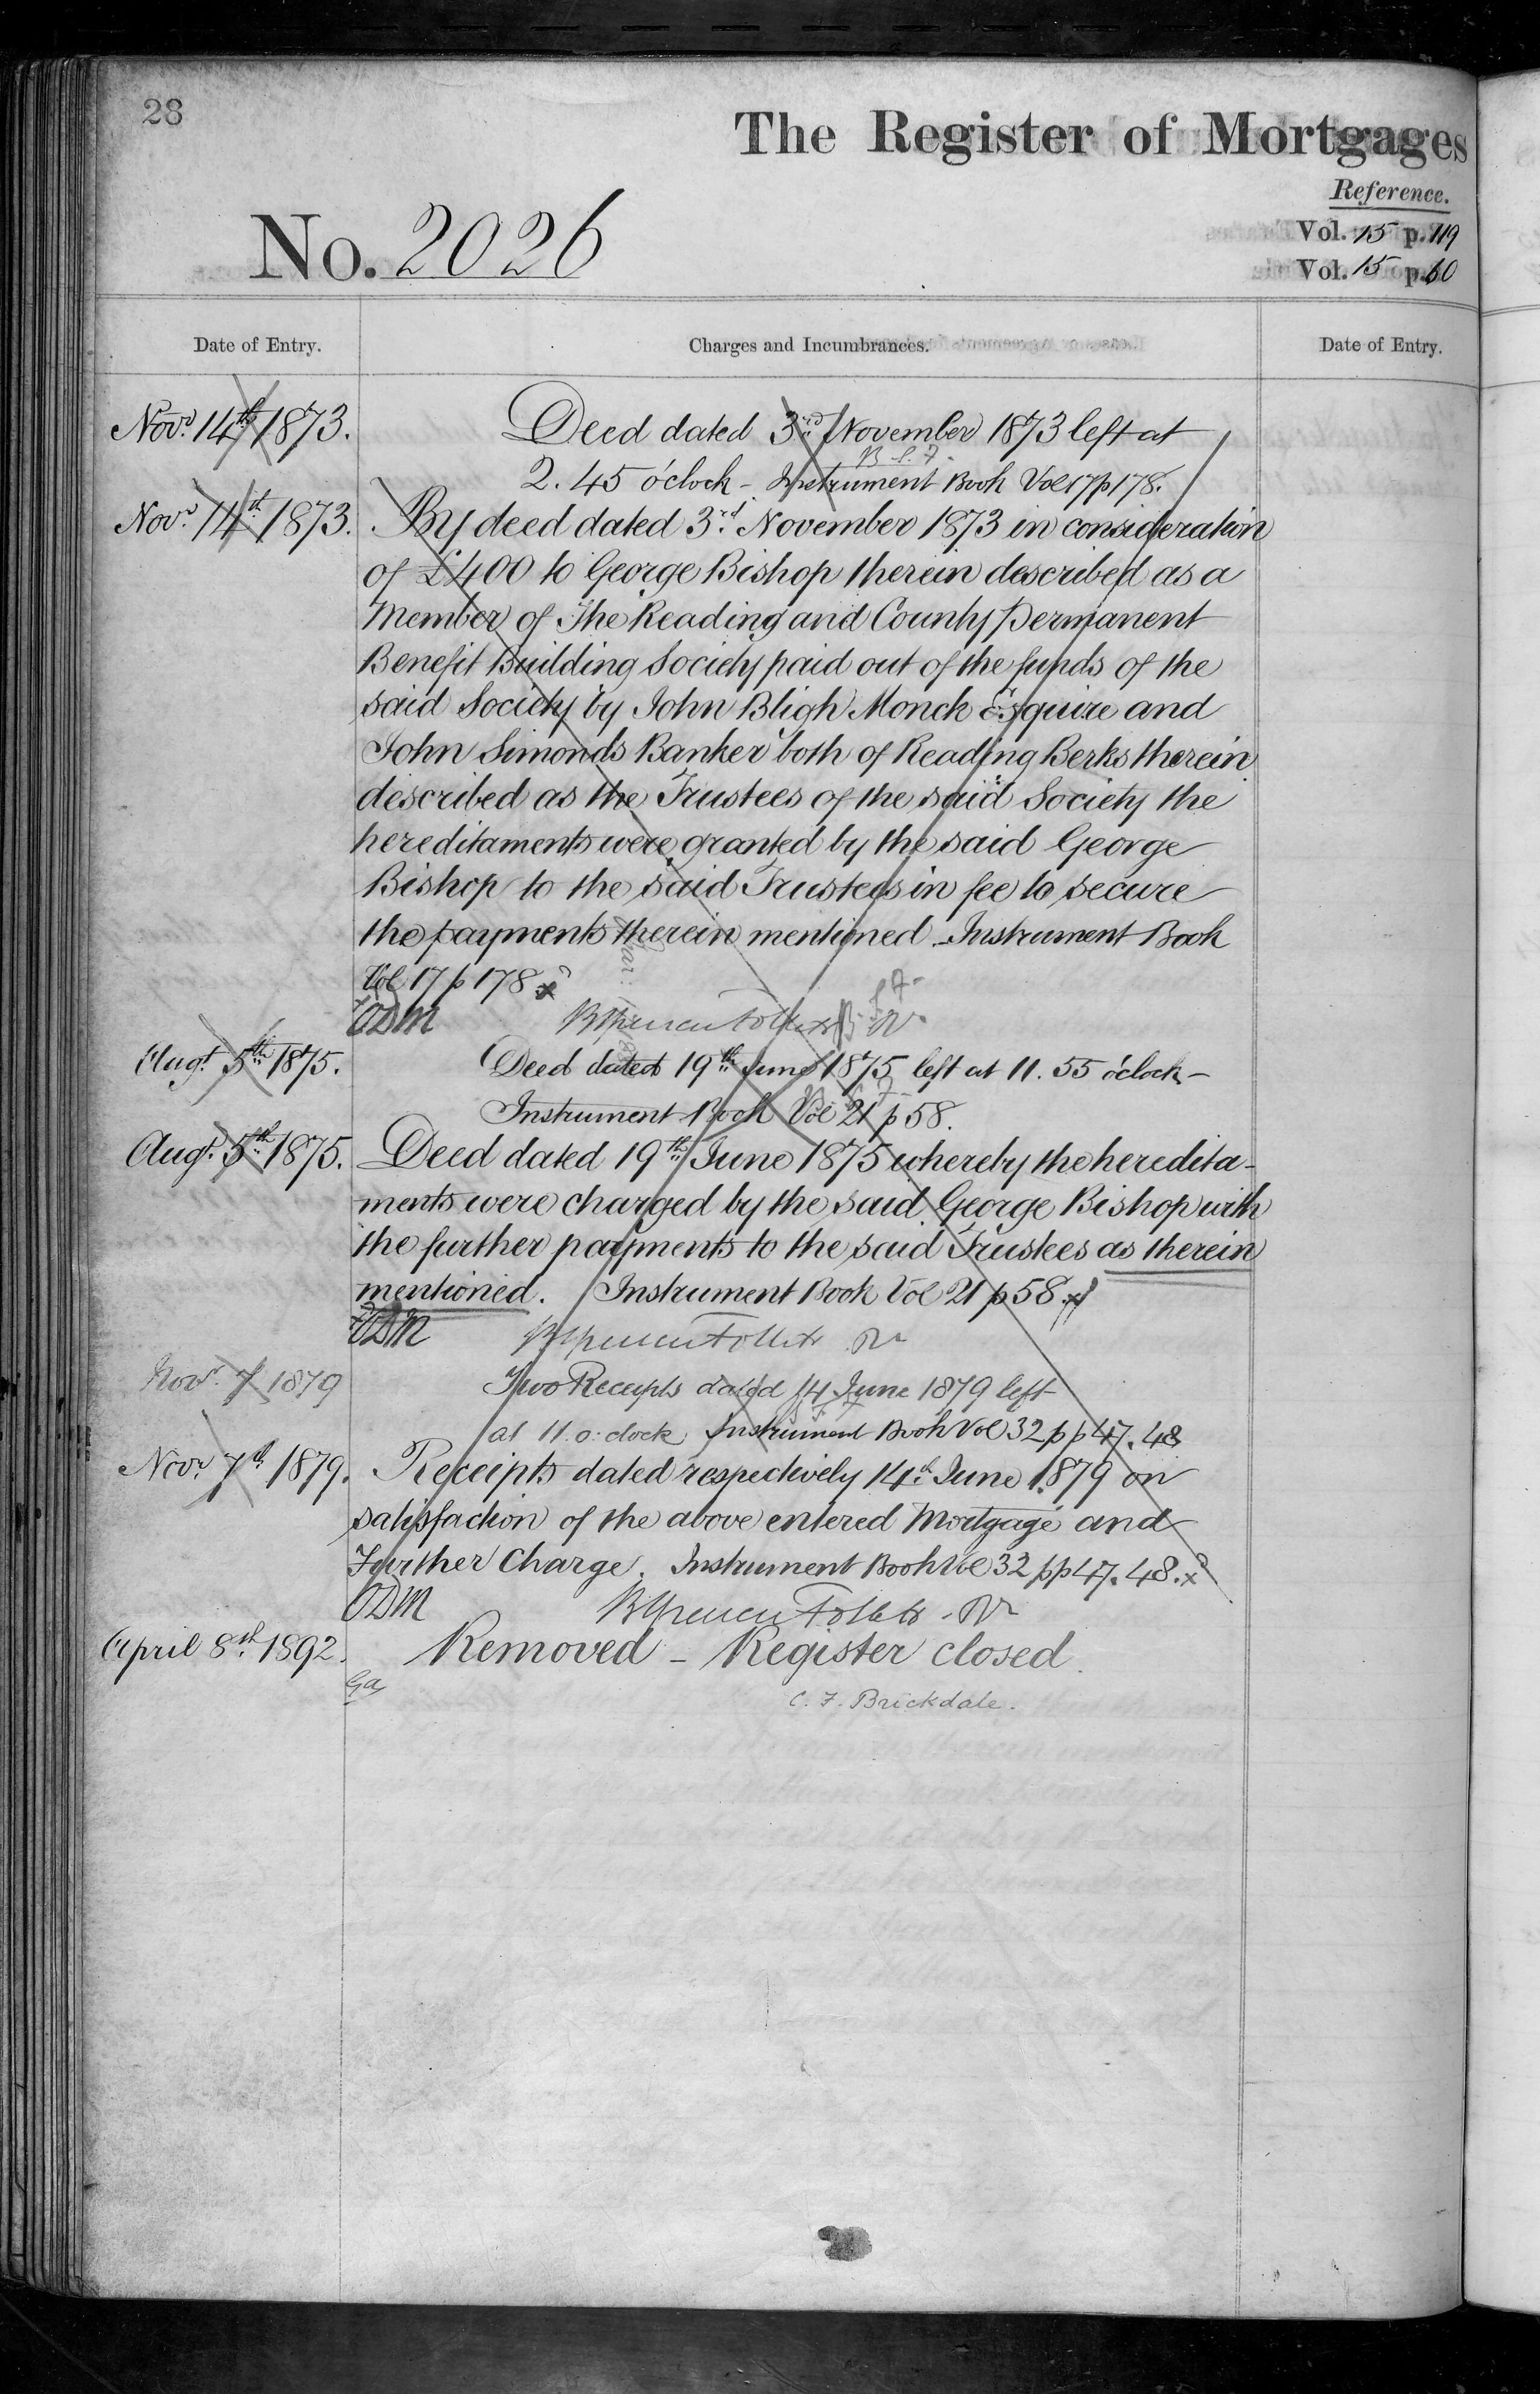 28
The Register of Mortgages
Reference.
No. 2026
Vol. 15 p. 119
Vol. 15 p. 60
Date of Entry.
Charges and Incumbrances.
Date of Entry.
Novr. 14th 1873.
Deed dated 3rd November 1873 left at
B. S. F.
2.45 o'clock - Instrument Book Vol 17 p 178.
Novr. 14th 1873.
By deed dated 3rd November 1873 in consideration
of £400 to George Bishop therein described as a
Member of The Reading and County Permanent
Benefit Building Society paid out of the funds of the
said Society by John Bligh Monck Esquire and
John Simonds Banker both of Reading Berks therein
described as the Trustees of the said Society the
hereditaments were granted by the said George
Bishop to the said Trustees in fee to secure
the payments therein mentioned - Instrument Book
Vol 17 p 178 x
ODM
R
Augt. 5th 1875.
Deed dated 19th June 1875 left at 11.55 o'clock -
Instrument Book Vol 21 p 58.
Augt. 5th 1875.
Deed dated 19th June 1875 whereby the heredita-
ments were charged by the said George Bishop with
the further payments to the said Trustees as therein
mentioned. Instrument Book Vol 21 p 58. x
ODM
R
Novr. 7 1879
Two Receipts dated 14 June 1879 left
at 11. o'clock Instrument Book Vol 32 pp 47. 48
Novr. 7th 1879.
Receipts dated respectively 14th June 1879 on
satisfaction of the above entered Mortgage and
Further Charge. Instrument Book Vol 32 pp 47. 48. x
ODM
R
April 8th 1892.
Removed - Register closed.
C. F. Brickdale.